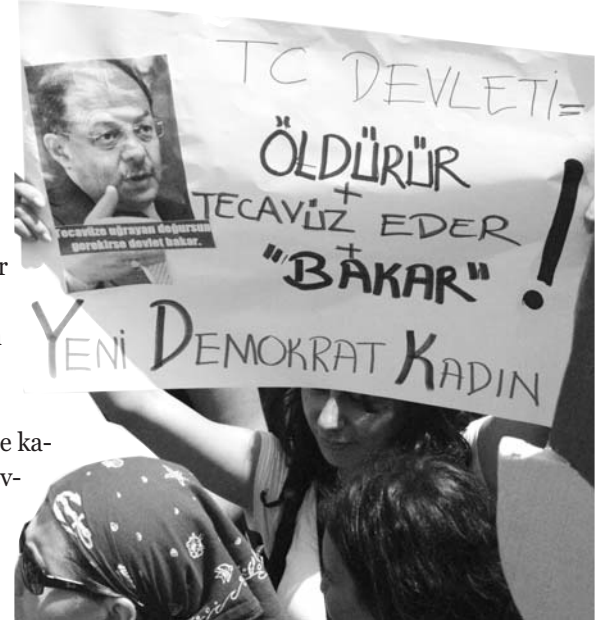 TC DEVLETİ=
ÖLDÜRÜR
+
TECAVÜZ EDER
+
"BAKAR"
!
Tecavüze uğrayan doğursun
gerekirse devlet bakar.
YENİ DEMOKRAT KADIN
r
e ka-
v-